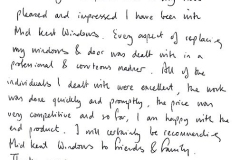 pleased and impressed I have been with
Mid Kent Windows. Every aspect of replacing
my windows & door was dealt with in a
professional & courteous manner. All of the
individuals I dealt with were excellent, the work
was done quickly and promptly, the price was
very competitive and so far, I am happy with the
end product. I will certainly be recommending
Mid Kent Windows to friends & family.